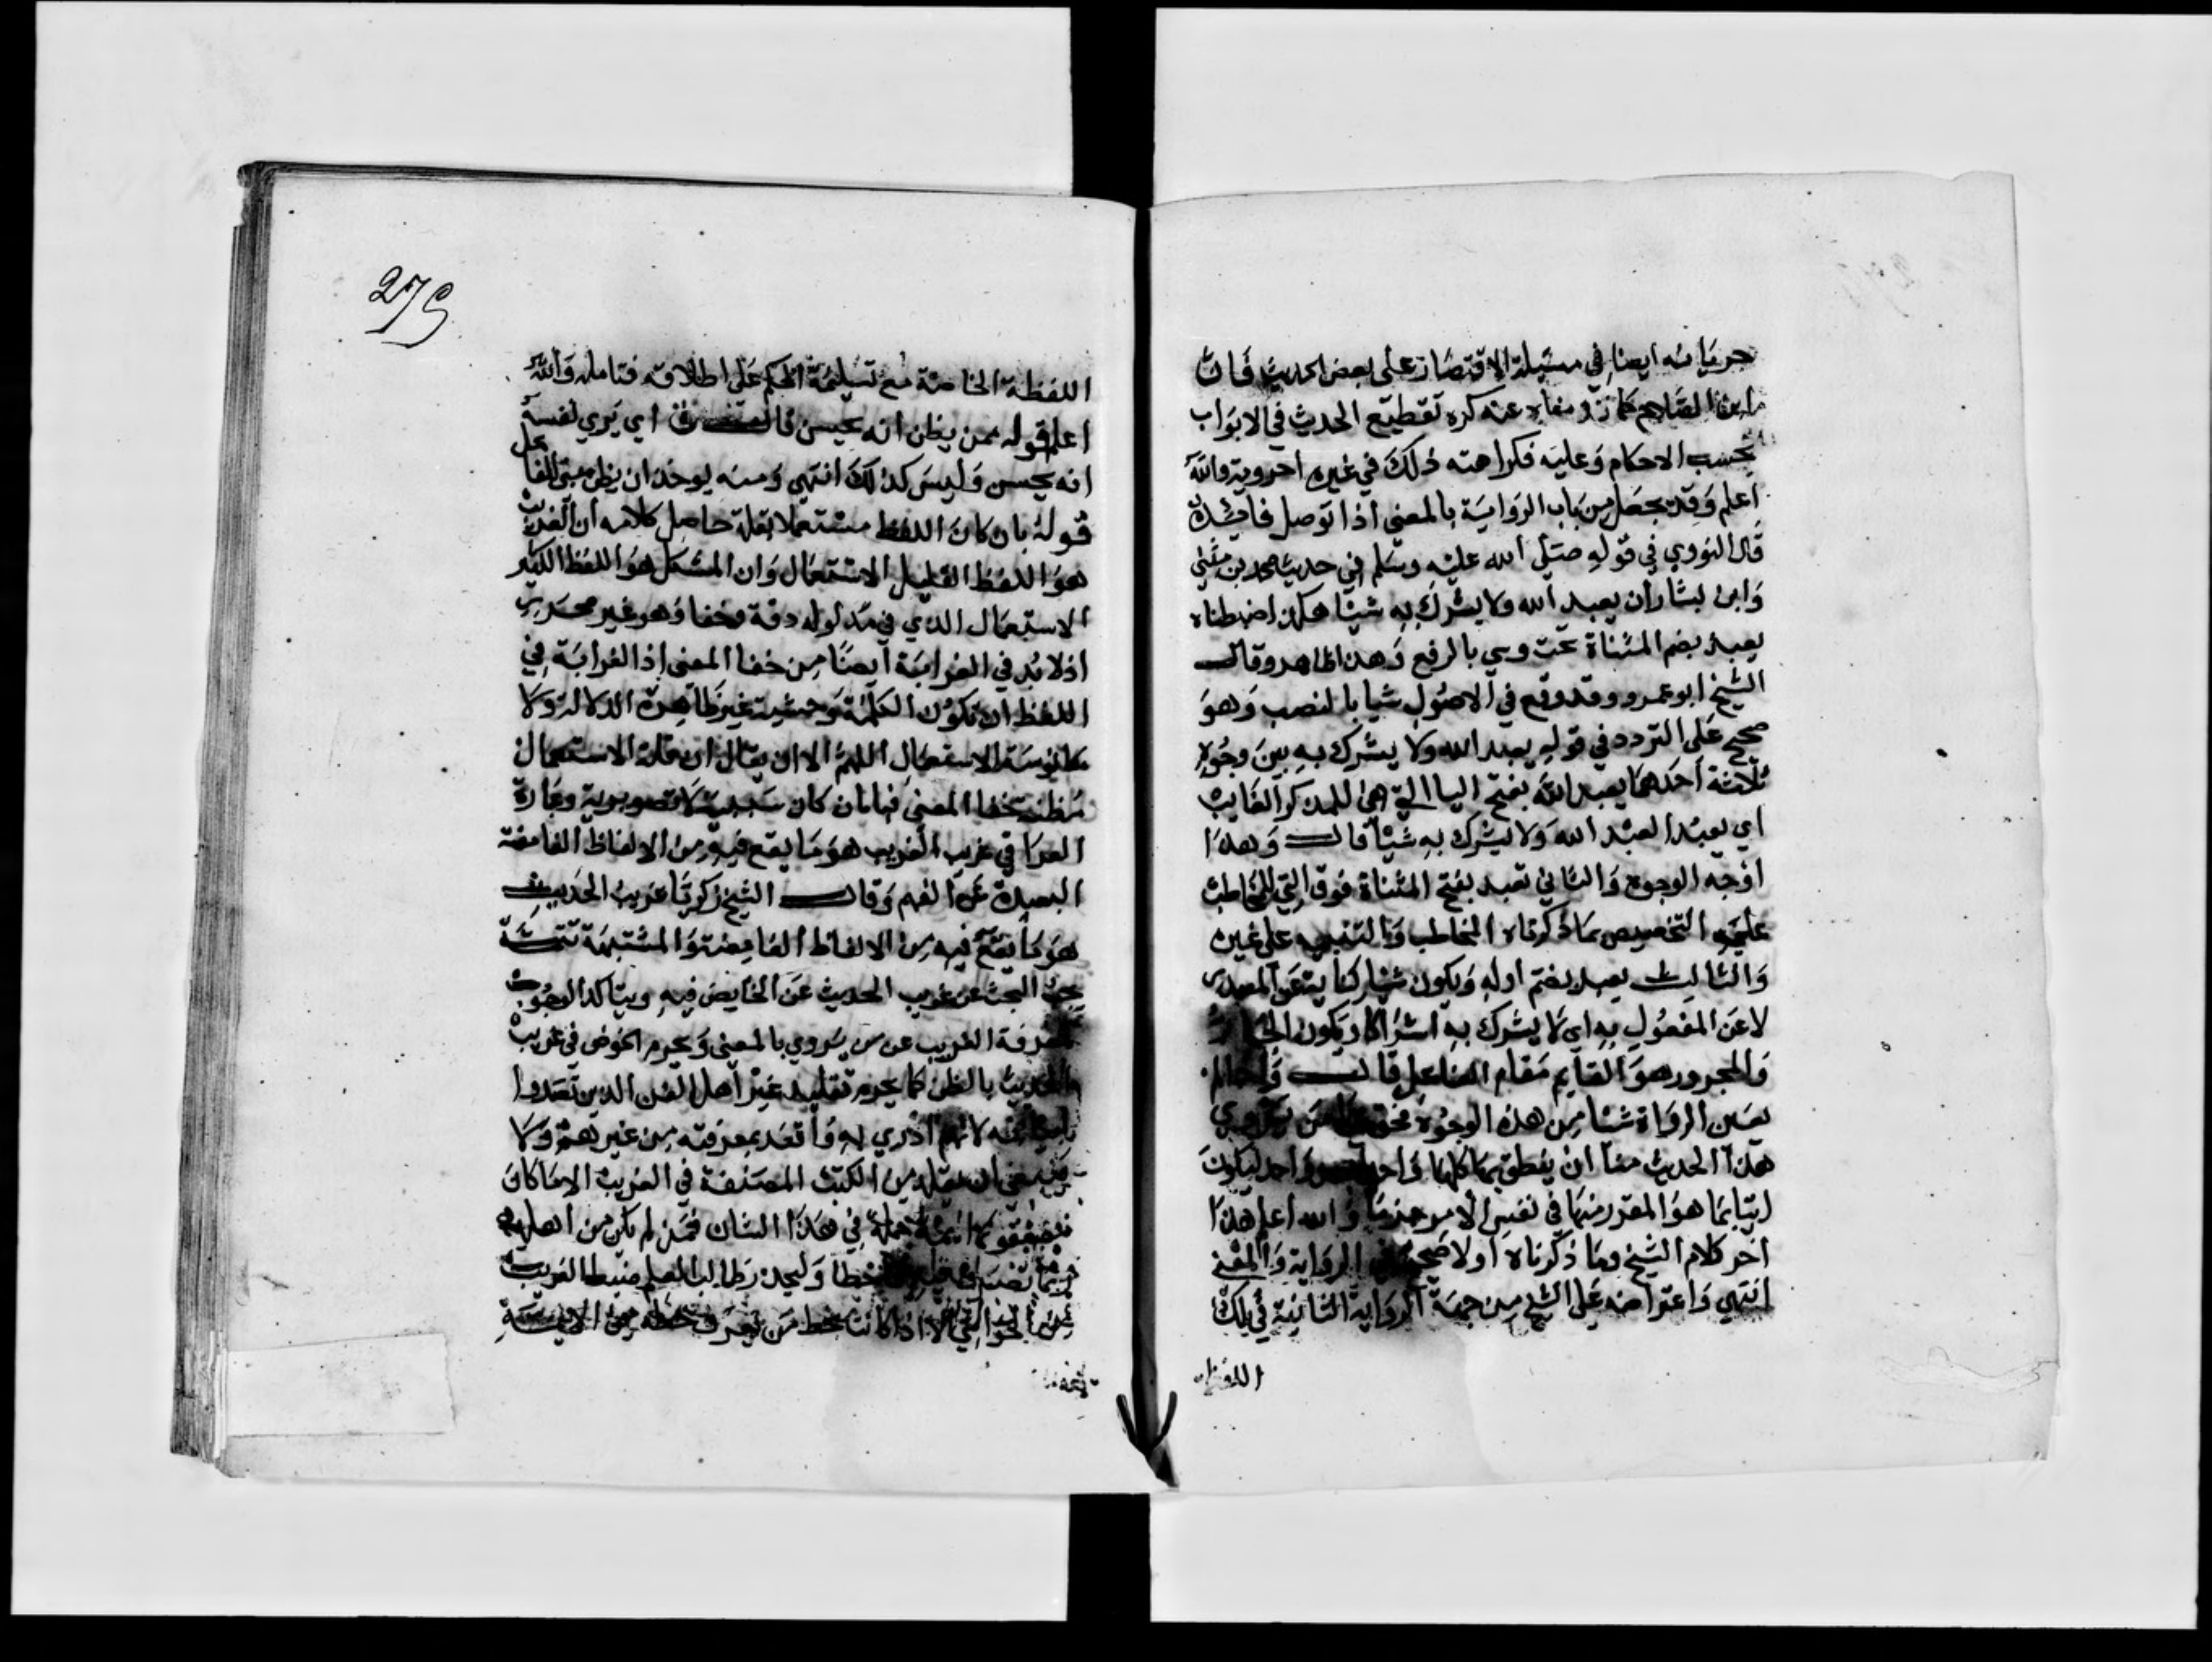 جريانه ايضا في مسئلة الاقتصار على بعض الحديث فان
ابن الصلاح كما عنه كره تقطيع الحديث في الابواب
بحسب الاحكام وعليه فكراهته ذلك في غيره احروية والله
اعلم وقد يجعل من باب الرواية بالمعنى اذا توصل
قال النووي في قوله صلى الله عليه وسلم في حديث محمد بن مثنى
وابن بشار ان يعبد الله ولا يشرك به شيئا هكذا ضبطناه
يعبد بضم المثناة تحت وشي بالرفع وهذا ظاهر وقال
الشيخ ابو عمرو وقد وقع في الاصول شيا بالنصب وهو
صحيح على التردد في قوله يعبد الله ولا يشرك به بين وجوه
ثلاثة احدها يعبد الله بفتح اليا التي هي للمذكر الغايب
اي يعبد العبد الله ولا يشرك به شيئا قال وهذا
اوجه الوجوه والثاني تعبد بفتح المثناة فوق التي للمخاطب
على التخصيص بما ذكرناه المخاطب والتنبيه على غيره
والثالث يعبد بضم اوله ويكون شيا كناية عن المصدر
لا عن المفعول به اي لا يشرك به اشراكا ويكون الجار
والمجرور هو القايم مقام الفاعل قال
يعين الرواة شيئا من هذه الوجوه فحق على من يروي
هذا الحديث منا ان ينطق بها كلها واحدا بعد واحد ليكون
اتيا بما هو المقرر منها في نفس الامر جزما والله اعلم هذا
اخر كلام الشيخ وما ذكرناه اولا صحيح في الرواية والمعنى
انتهى واعتراضه على الشيخ من جهة الرواية الثانية في تلك
اللفظة
279
اللفظة الخاصة مع تسليمه الحكم على اطلاقه فتامله والله
اعلم قوله ممن يظن انه يحسن قال اي يري نفسه
انه يحسن وليس كذلك انتهى ومنه يوخذ ان يظن مبني للفاعل
قوله بان كان اللفظ مستعملا بقلة حاصل كلامه ان الغريب
هو اللفظ القليل الاستعمال وان المشكل هو اللفظ الكثير
الاستعمال الذي في مدلوله دقة وخفا وهو غير محرر
اذ لا بد في الغرابة ايضا من خفا المعنى اذ الغرابة في
اللفظ ان تكون الكلمة وحشية غير ظاهرة الدلالة ولا
مانوسة الاستعمال اللهم الا ان يقال ان قلة الاستعمال
مظنة خفا المعنى وعبارة
العراقي غريب الغريب هو ما يقع فيه من الالفاظ الغامضة
البعيدة عن الفهم وقال الشيخ زكريا غريب الحديث
هو ما يقع فيه من الالفاظ الغامضة والمشتبهة تتمة
يجب البحث عن غريب الحديث عن الخايض فيه ويتاكد الوجوب
لمعرفة الغريب عن من يروي بالمعنى ويحرم الخوض في غريب
الحديث بالظن كما يحرم تقليد غير اهل الفن الذين تصدوا
لانهم ادري به واقعد بمعرفته من غيرهم ولا
ينبغي ان يقلد من الكتب المصنفة في الغريب الا ما كان
مصنفوها ايمة جملة في هذا الشان فمن لم يكن من اهله
ربما تصرف فيه فاخطا وليحذر طالب العلم ضبط الغريب
من الحواشي الا اذا كانت بخط من يعرف خطه من الايمة